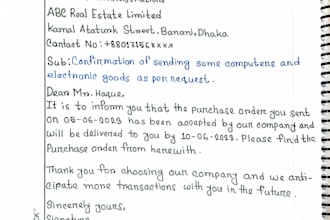 ABC Real Estate Limited
Kamal Ataturk Street, Banani, Dhaka
Contact No: +88017156xxxx
Sub: Confirmation of sending some computers and
electronic goods as per request.
Dear Mr. Haque,
It is to inform you that the purchase order you sent
on 05-06-2023 has been accepted by our company and
will be delivered to you by 10-06-2023. Please find the
Purchase order from herewith.
Thank you for choosing our company and we anti-
cipate more transactions with you in the future.
Sincerely yours,